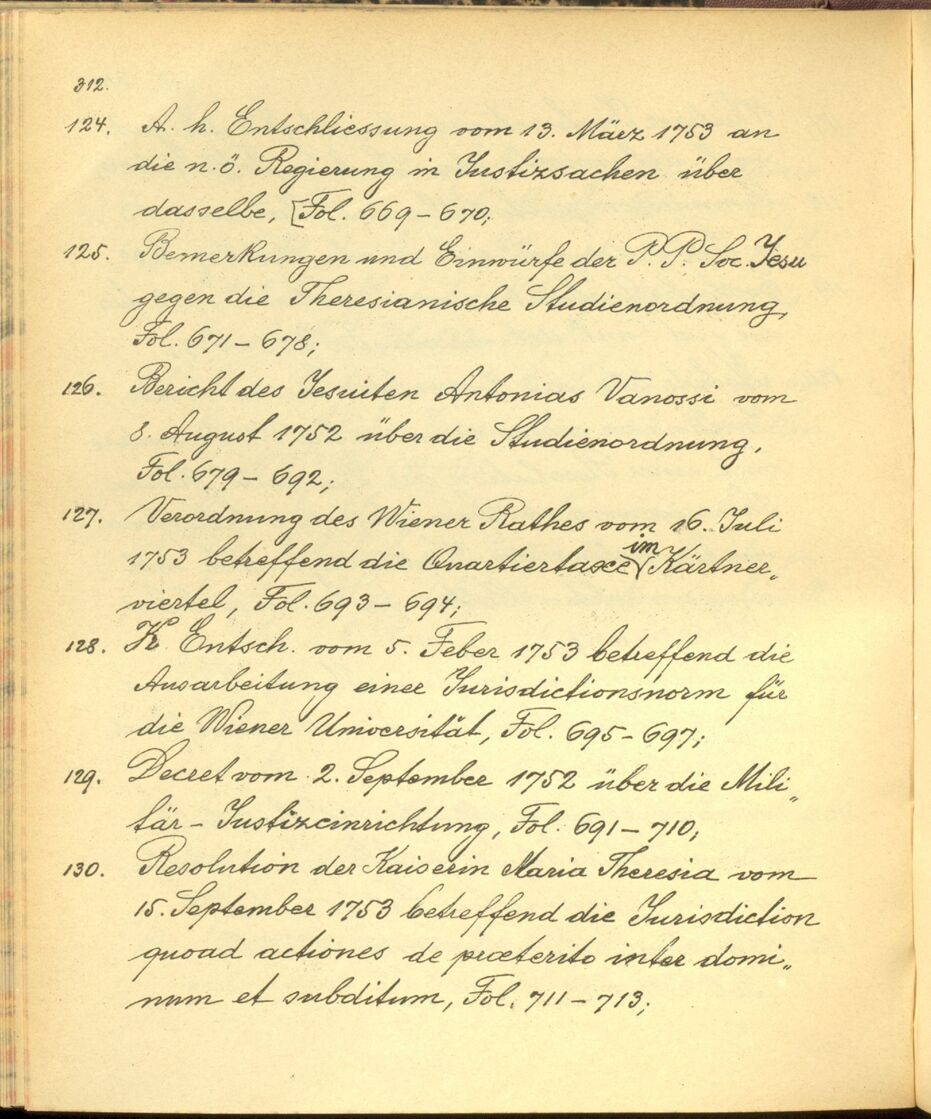 312.
124. A. h. Entschliessung vom 13. März 1753 an
die n. ö. Regierung in Justizsachen über
dasselbe, [Fol. 669 – 670;
125. Bemerkungen und Einwürfe der P. P. Soc. Jesu
gegen die Theresianische Studienordnung,
Fol. 671 – 678;
126. Bericht des Jesuiten Antonias Vanossi vom
8. August 1752 über die Studienordnung,
Fol. 679 – 692;
127. Verordnung des Wiener Rathes vom 16. Juli
1753 betreffend die Quartiertaxe im Kärtner„
viertel, Fol. 693 – 694;
128. K. Entsch. vom 5. Feber 1753 betreffend die
Ausarbeitung einer Jurisdictionsnorm für
die Wiener Universität, Fol. 695 – 697;
129. Decret vom 2. September 1752 über die Mili„
tär – Justizeinrichtung, Fol. 691 – 710;
130. Resolution der Kaiserin Maria Theresia vom
15. September 1753 betreffend die Jurisdiction
quoad actiones de præterito inter domi„
num et subditum, Fol. 711 – 713;